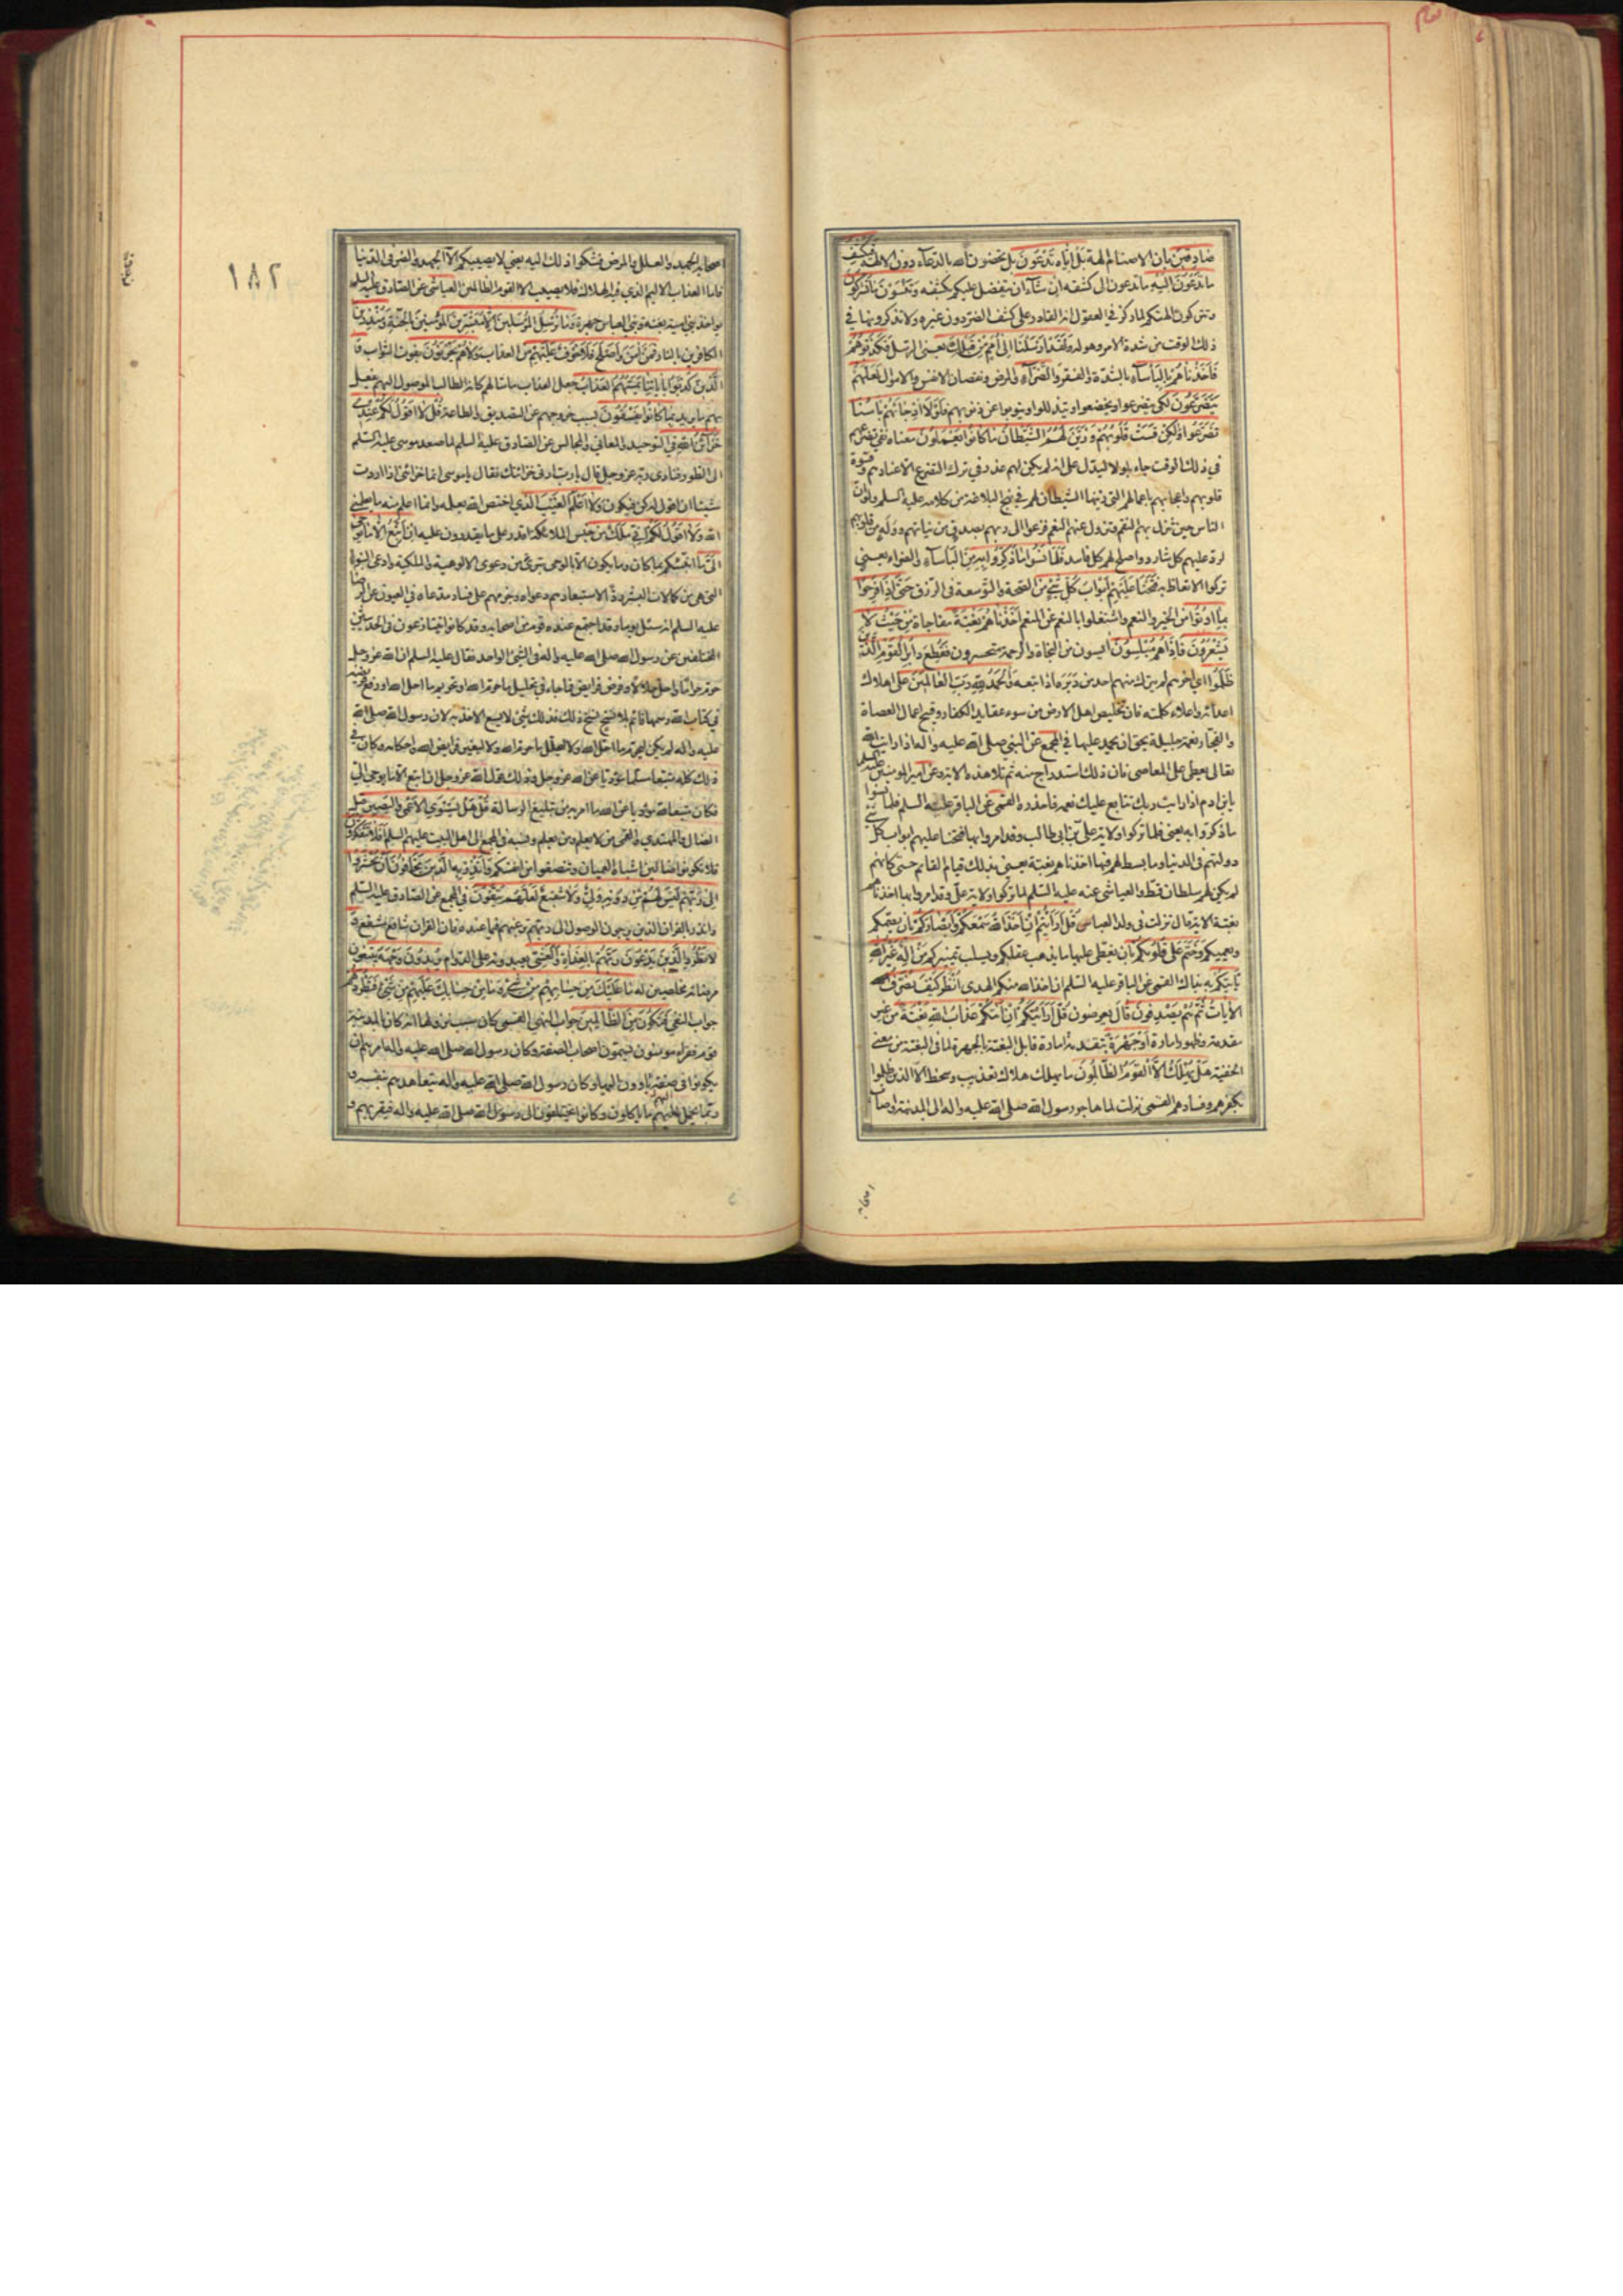 صادقين بان الاصنام الهة بل اياه تدعون بل تخصون الله بالدعاء دون الالهة فيكشف
ما تدعون اليه ما تدعون الى كشفه ان شاء ان يتفضل عليكم بكشفه وتنسون ما تشركون
وتتركون الهتكم لما ركز في العقول انه القادر على كشف الضر دون غيره ولا تذكرونها في
ذلك الوقت من شدة الامر وهوله ولقد ارسلنا الى امم من قبلك يعني الرسل فكذبوهم
فاخذناهم بالبأساء بالشدة والفقر والضراء والمرض ونقصان الانفس والاموال لعلهم
يتضرعون لكي يتضرعوا ويخضعوا ويتذللوا ويتوبوا عن ذنوبهم فلولا اذ جاءهم باسنا
تضرعوا ولكن قست قلوبهم وزين لهم الشيطان ما كانوا يعملون معناه نفي تضرعهم
في ذلك الوقت جاء بلولا ليدل على انه لم يكن لهم عذر في ترك التضرع الا عنادهم وقسوة
قلوبهم واعجابهم باعمالهم التي زينها الشيطان لهم في نهج البلاغة من كلامه عليه السلم ولو ان
الناس حين تنزل بهم النقم وتزول عنهم النعم فزعوا الى ربهم بصدق من نياتهم ووله من قلوبهم
لرد عليهم كل شارد واصلح لهم كل فاسد فلما نسوا ما ذكروا به من البأساء والضراء يعني
تركوا الاتعاظ به فتحنا عليهم ابواب كل شيء من الصحة والتوسعة في الرزق حتى اذا فرحوا
بما اوتوا من الخير والنعم واشتغلوا بالنعم عن المنعم اخذناهم بغتة مفاجاة من حيث لا
يشعرون فاذا هم مبلسون ايسون من النجاة والرحمة متحسرون فقطع دابر القوم الذين
ظلموا اي اخرهم لم يترك منهم احد من دبره اذا اتبعه والحمد لله رب العالمين على اهلاك
اعدائه واعلاء كلمته فان تخليص اهل الارض من سوء عقايد الكفار وقبح اعمال العصاة
والفجار نعمة جليلة يحق ان يحمد عليها في المجمع عن النبي صلى الله عليه واله اذا رايت الله
تعالى يعطي على المعاصي فان ذلك استدراج منه ثم تلا هذه الاية وعن امير المومنين عليه السلم
يابن ادم اذا رايت ربك تتابع عليك نعمه فاحذره القمي عن الباقر عليه السلم فلما نسوا
ما ذكروا به يعني فلما تركوا ولاية علي بن ابي طالب وقد امروا بها فتحنا عليهم ابواب كل شيء
دولتهم في الدنيا وما بسط لهم فيها اخذناهم بغتة يعني بذلك قيام القائم حتى كانهم
لم يكن لهم سلطان قط والعياشي عنه عليه السلم لما تركوا ولاية علي وقد امروا بها اخذناهم
بغتة الاية قال نزلت في ولد العباس قل ارأيتم ان اخذ الله سمعكم وابصاركم بان يصمكم
ويعميكم وختم على قلوبكم بان يغطي عليها ما يذهب عقلكم ويسلب تميزكم من اله غير الله
ياتيكم به بذاك القمي عن الباقر عليه السلم ان اخذ الله منكم الهدى انظر كيف نصرف
الايات ثم هم يصدفون قال يعرضون قل ارأيتكم ان اتاكم عذاب الله بغتة من غير
مقدمة وظهور امارة او جهرة بتقدمة امارة قابل البغتة بالجهرة لما في البغتة من معنى
الخفية هل يهلك الا القوم الظالمون ما يهلك هلاك تعذيب وسخط الا الذين ظلموا
بكفرهم وفسادهم القمي نزلت لما هاجر رسول الله صلى الله عليه واله الى المدينة واصاب
اصحابه
١٨٢
اصحابه الجهد والعلل والمرض فشكوا ذلك اليه يعني لا يصيبكم الا الجهد والضر في الدنيا
فاما العذاب الاليم الذي فيه الهلاك فلا يصيب الا القوم الظالمين العياشي عن الصادق عليه السلم
يواخذ بني امية بغتة وبني العباس جهرة وما نرسل المرسلين الا مبشرين المؤمنين بالجنة ومنذرين
الكافرين بالنار فمن امن واصلح فلا خوف عليهم من العذاب ولا هم يحزنون بفوت الثواب و
الذين كذبوا باياتنا يمسهم العذاب جعل العذاب ماسا لهم كانه الطالب للوصول اليهم يفعل
بهم ما يريد بما كانوا يفسقون بسبب خروجهم عن التصديق والطاعة قل لا اقول لكم عندي
خزائن الله في التوحيد والمعاني والمجالس عن الصادق عليه السلم لما صعد موسى عليه السلم
الى الطور فنادى ربه عز وجل قال يا رب ارني خزائنك فقال يا موسى انما خزائني اذا اردت
شيئا ان اقول له كن فيكون ولا اعلم الغيب الذي اختص الله بعلمه وانما اعلم منه ما يعلمني
الله ولا اقول لكم اني ملك من جنس الملائكة اقدر على ما يقدرون عليه ان اتبع الا ما يوحى
الي ما انبئكم بما كان وما يكون الا بالوحي تبرئ من دعوى الالوهية والملكية وادعى النبوة
التي هي من كمالات البشر ردا لاستبعادهم دعواه وجزمهم على فساد مدعاه في العيون عن الرضا
عليه السلم انه سئل يوما وقد اجتمع عنده قوم من اصحابه وقد كانوا تنازعون في الحديثين
المختلفين عن رسول الله صلى الله عليه واله في الشيء الواحد فقال عليه السلم ان الله عز وجل
حرم حراما واحل حلالا وفرض فرايض فما جاء في تحليل ما حرم الله او تحريم ما احل الله او دفع فريضة
في كتاب الله رسمها قائم بلا نسخ نسخ ذلك فذلك شيء لا يسع الاخذ به لان رسول الله صلى الله
عليه واله لم يكن ليحرم ما احل الله ولا ليحلل ما حرم الله ولا ليغير فرايض الله واحكامه وكان في
ذلك كله متبعا مسلما مؤديا عن الله عز وجل وذلك قول الله عز وجل ان اتبع الا ما يوحى الي
فكان متبعا لله موديا عن الله ما امره به من تبليغ الرسالة قل هل يستوي الاعمى والبصير مثل
الضال والمهتدي والقمي من لا يعلم ومن يعلم ونسبه في المجمع الى اهل البيت عليهم السلم افلا تتفكرون
فلا تكونوا ضالين اشباه العميان وتنصفوا من انفسكم وانذر به الذين يخافون ان يحشروا
الى ربهم ليس لهم من دونه ولي ولا شفيع لعلهم يتقون في المجمع عن الصادق عليه السلم
وانذر بالقران الذين يرجون الوصول الى ربهم ترغبهم فيما عنده فان القران شافع مشفع و
لا تطرد الذين يدعون ربهم بالغداة والعشي يعبدونه على الدوام يريدون وجهه يبتغون
مرضاته مخلصين له ما عليك من حسابهم من شيء وما من حسابك عليهم من شيء فتطردهم
جواب النفي فتكون من الظالمين جواب النهي القمي كان سبب نزولها انه كان بالمدينة
قوم فقراء مومنون يسمون اصحاب الصفة وكان رسول الله صلى الله عليه واله امرهم ان
يكونوا في صفة ياوون اليها وكان رسول الله صلى الله عليه واله يتعاهدهم بنفسه و
ربما يحمل اليهم ما ياكلون وكانوا يختلفون الى رسول الله صلى الله عليه واله فيقربهم و